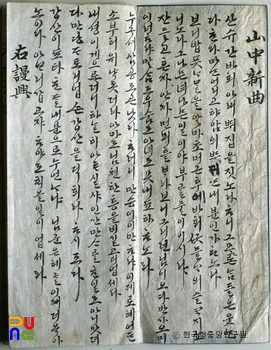 山中新曲
산슈간바회아래뛰집을짓노라ᄒᆞ니그모론ᄂᆞᆷ들은욷
ᄂᆞᆫ다ᄒᆞᆫ다마ᄂᆞᆫ어리고햐암의뜻의ᄂᆞᆫ내분인가ᄒᆞ노라
보리밥픗ᄂᆞ물을알마초머근후에바횟긋믉ᄀᆞ의슬ᄏᆞ지노
니노라그나믄녀나믄일이야부ᄅᆞᆯ줄이이시랴
잔들고혼자안자먼뫼흘ᄇᆞ라보니그리던님이오다반가옴이
이러ᄒᆞ랴말ᄉᆞᆷ도우음도아녀도몯내됴하ᄒᆞ노라
누고셔삼공도곤낫다ᄒᆞ더니만승이이만ᄒᆞ랴이제로헤어든
소부허유ㅣ냑돗더라아마도님쳔한흥을비길곳이업세라
내셩이게으르더니하ᄂᆞᆯ히아ᄅᆞ실샤인간만ᄉᆞᄅᆞᆯᄒᆞᆫ일도아니맛뎌
다만당ᄃᆞ토리업슨강산을딕희라ᄒᆞ시도다
강산이됴타ᄒᆞᆫᄃᆞᆯ내분으로누얻ᄂᆞ냐님군은혜ᄅᆞᆯ이제더옥아
노이다아ᄆᆞ리갑고쟈ᄒᆞ야도ᄒᆡ올일이업세라
右謾興
한국학중앙연구원